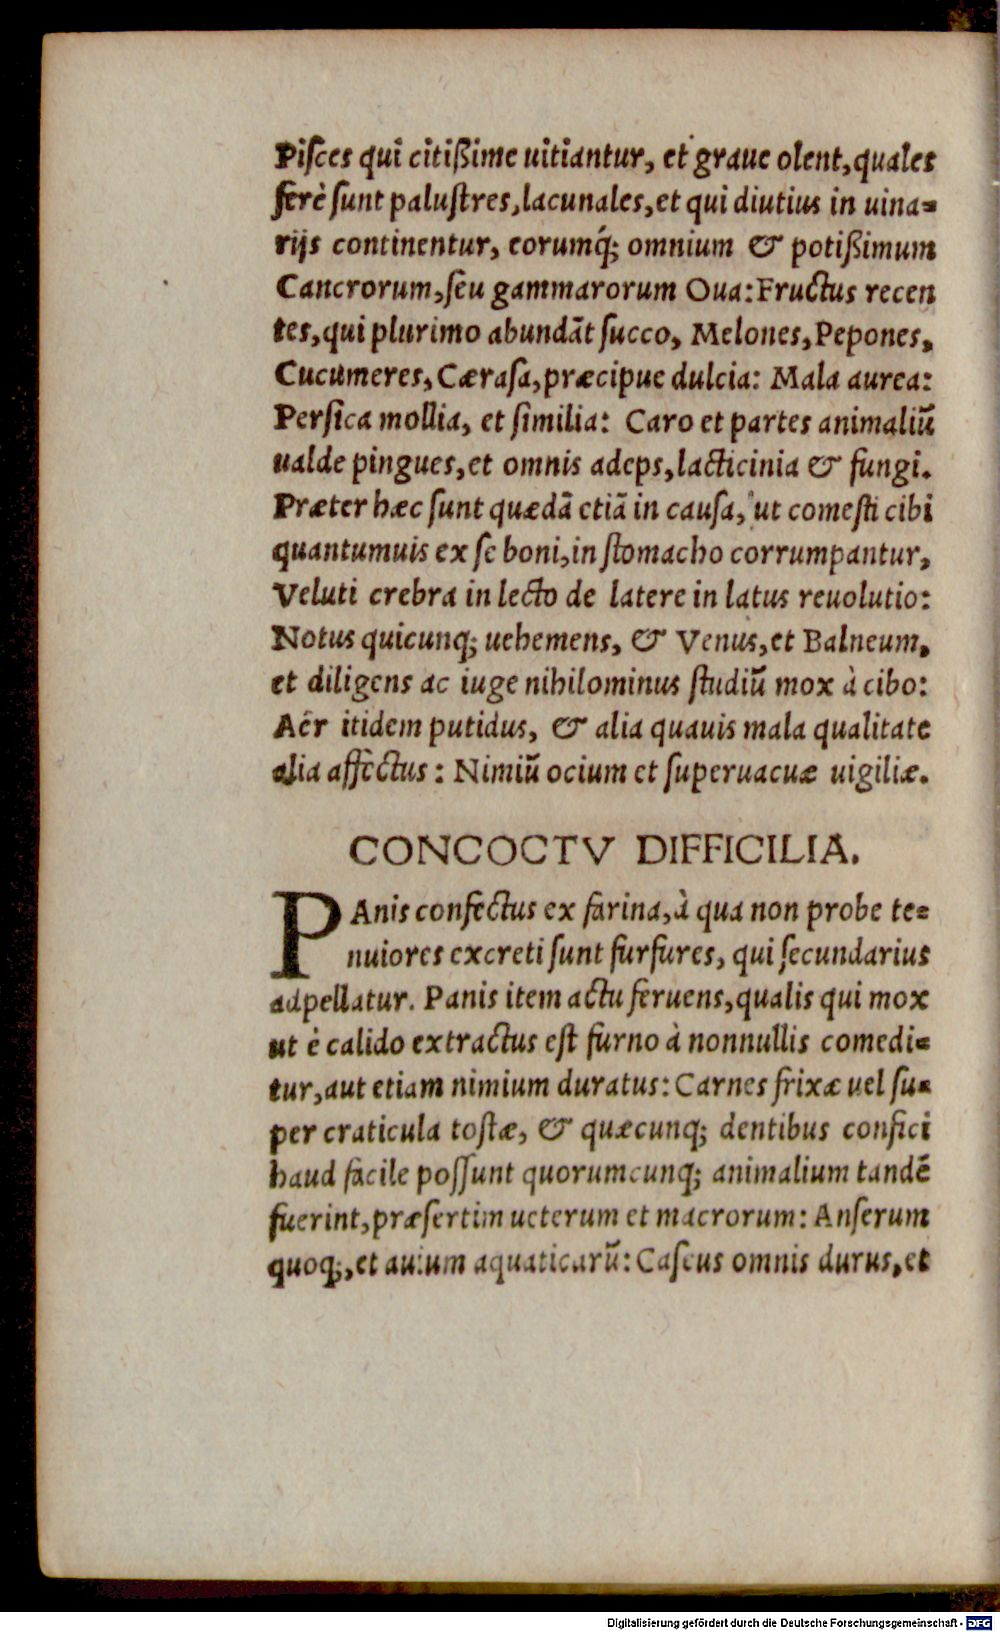 Piſces qui citißime uitiantur, et graue olent, quales
ferè ſunt paluſtres, lacunales, et qui diutius in uina=
rijs continentur, eorumq́; omnium & potißimum
Cancrorum, ſeu gammarorum Oua: Fructus recen
tes, qui plurimo abundāt ſucco, Melones, Pepones,
Cucumeres, Cæraſa, præcipue dulcia: Mala aurea:
Perſica mollia, et ſimilia: Caro et partes animaliū
ualde pingues, et omnis adeps, lacticinia & fungi.
Præter hæc ſunt quædā etiā in cauſa, ut comeſti cibi
quantumuis ex ſe boni, in ſtomacho corrumpantur,
Veluti crebra in lecto de latere in latus reuolutio:
Notus quicunq; uehemens, & Venus, et Balneum,
et diligens ac iuge nihilominus ſtudiū mox à cibo:
Aër itidem putidus, & alia quauis mala qualitate
alia affectus: Nimiū ocium et ſuperuacuæ uigiliæ.
CONCOCTV DIFFICILIA.
PAnis confectus ex farina, à qua non probe te=
nuiores excreti ſunt furfures, qui ſecundarius
adpellatur. Panis item actu feruens, qualis qui mox
ut è calido extractus eſt furno à nonnullis comedi=
tur, aut etiam nimium duratus: Carnes frixæ uel ſu=
per craticula toſtæ, & quæcunq; dentibus confici
haud facile poſſunt quorumcunq; animalium tandē
fuerint, præſertim ueterum et macrorum: Anſerum
quoq;, et auium aquaticarū: Caſeus omnis durus, et
Digitalisierung gefördert durch die Deutsche Forschungsgemeinschaft - DFG